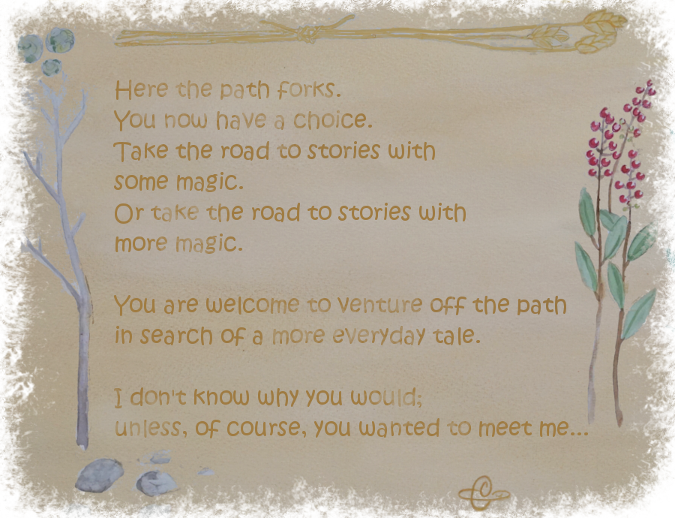 Here the path forks.
You now have a choice.
Take the road to stories with
some magic.
Or take the road to stories with
more magic.
You are welcome to venture off the path
in search of a more everyday tale.
I don't know why you would;
unless, of course, you wanted to meet me...